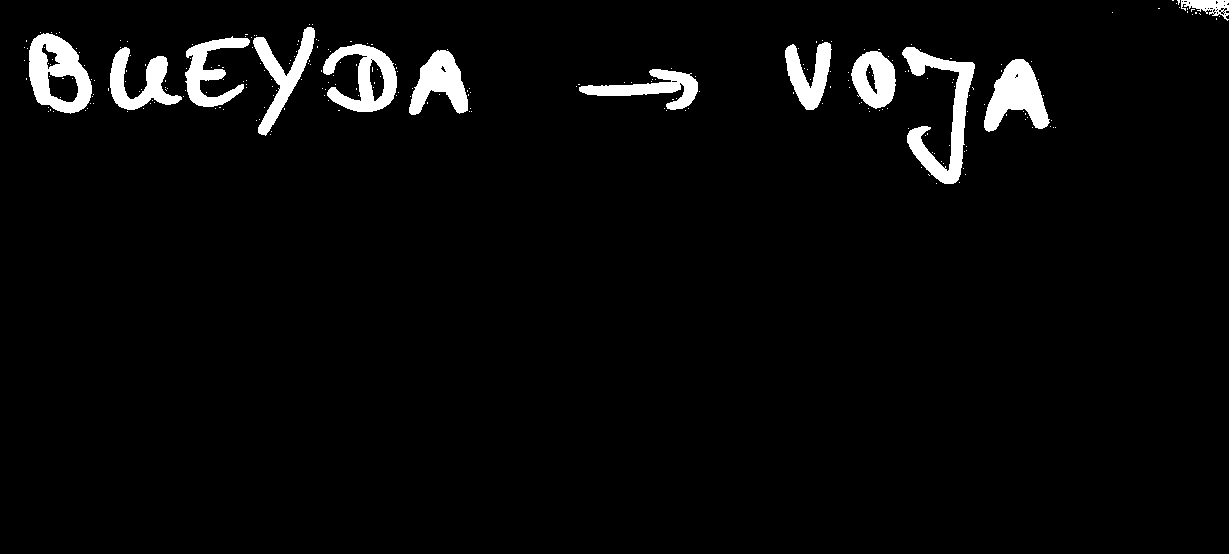 BUEYDA → VOJA